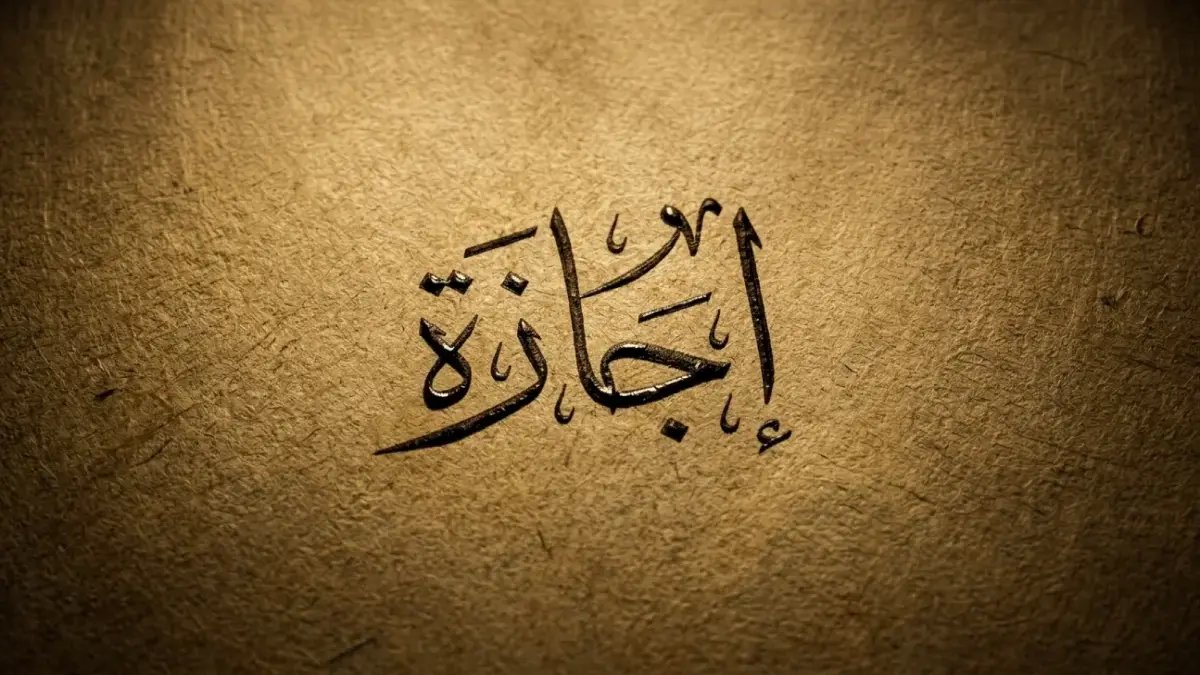 إِجَازَة